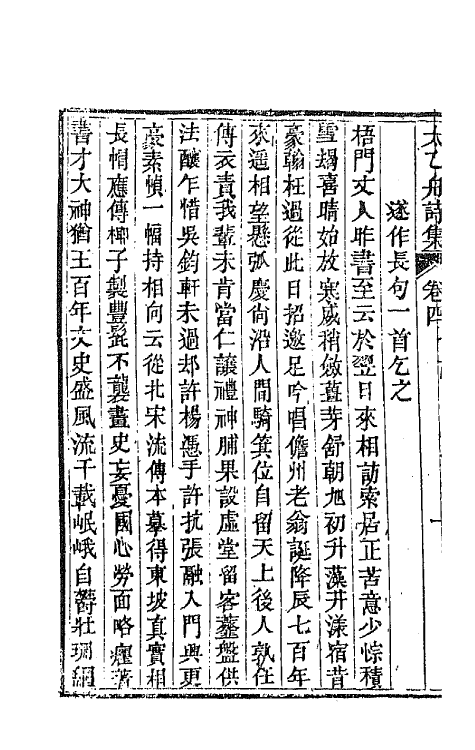 太乙舟詩集 卷四
遂作長句一首乞之
梧門丈人昨書至云於翌日來相訪索居正苦意少悰積
雪蠲喜晴始放寒威稍斂薑芽舒朝旭初升藻井漾宿昔
豪翰枉過從此日招邀足吟唱儋州老翁誕降辰七百年
來遥相望懸弧慶尚沿人間騎箕位自留天上後人孰任
傳衣責我輩未肯當仁讓禮神脯果設虛堂留客虀盤供
法釀乍惜吳鈞軒未過却許楊憑手許抗張融入門興更
豪素幀一幅持相向云從北宋流傳本摹得東坡真實相
長帽應傳椰子製豐髭不襲畫史妄憂國心勞面略癯著
書才大神猶王百年文史盛風流千載岷峨自鬱壯瑯嬛